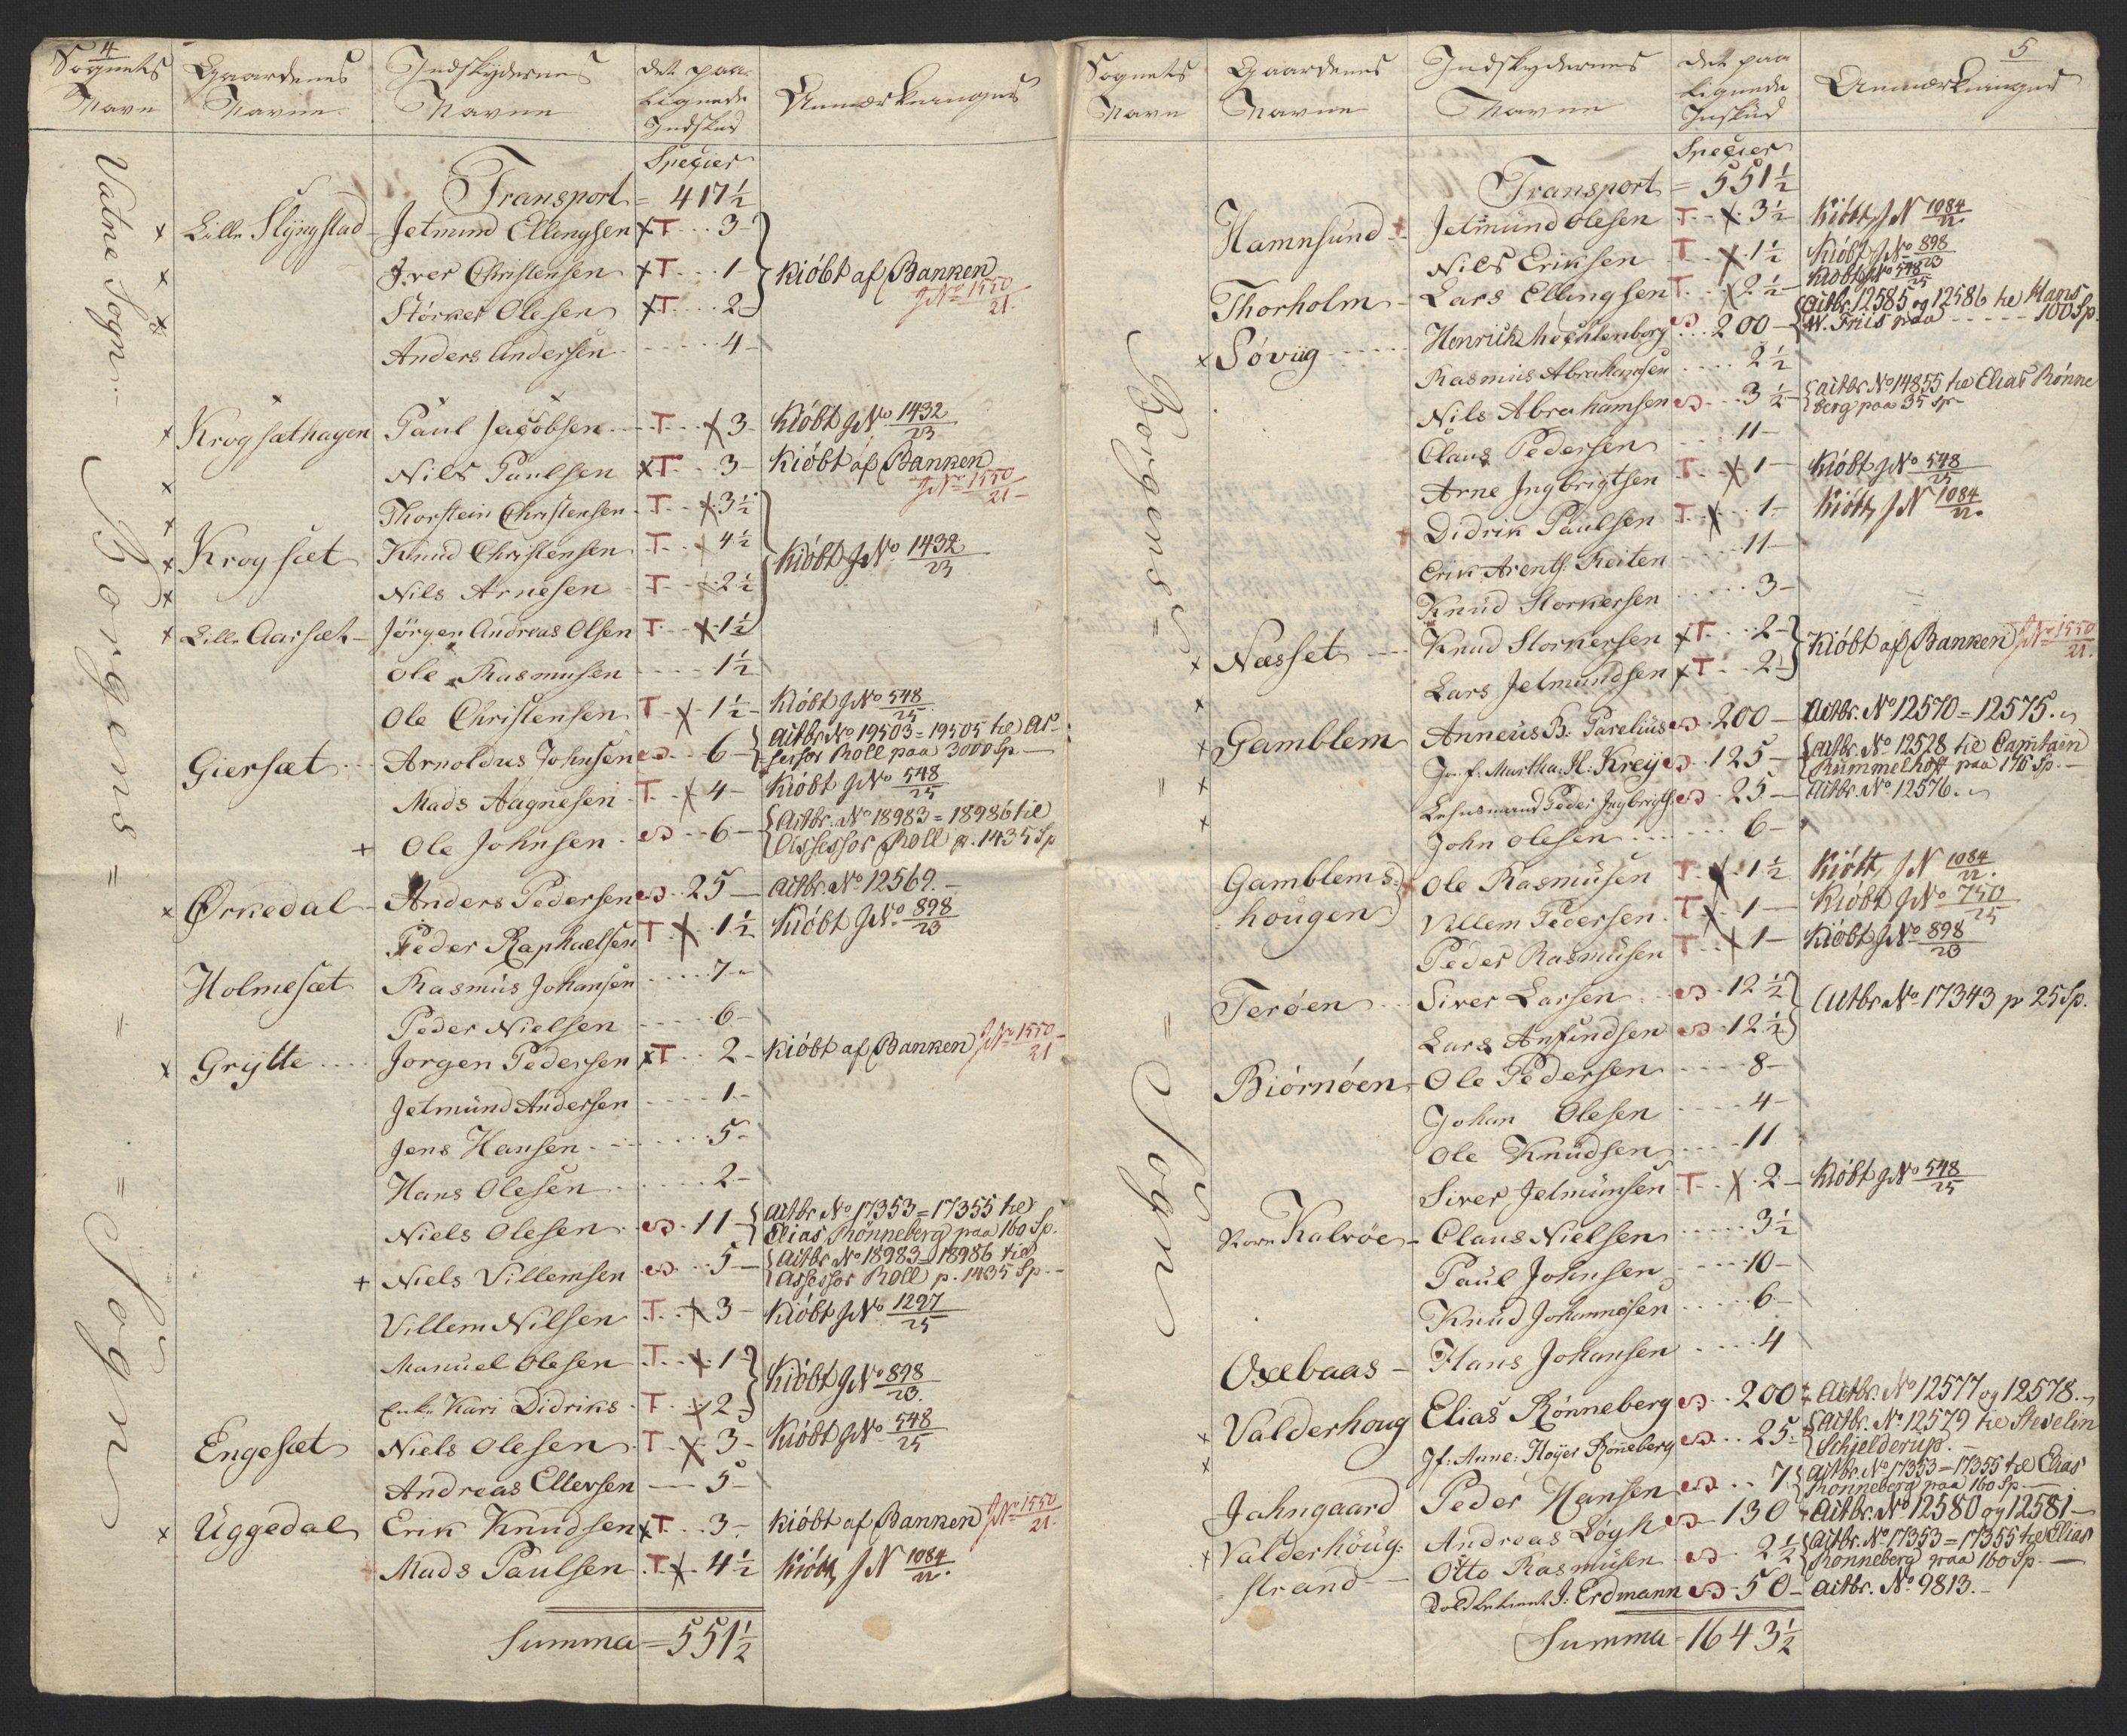 4
Sognets Navn | Gaardenes Navne | Indskydernes Navne | det paa lignede Indskud | Anmærkninger
Vatne Sogn
Borgens = = = Sogn
Specier
Transport = 417½
Lille Slyngstad - Jetmund Ellingsen xT 3
Iver Christensen xT 1 } kiöbt af Banken J No 1550/21.
Störker Olesen xT 2
Anders Andersen 4
Krogsæthagen Paul Jacobsen T x 3 Kiöbt J No 1432/23
Nils Paulsen xT 3 Kiöbt af Banken J No 1550/21
Thorstein Christensen T x 3½
Krogsæt Knud Christensen T x 4½ Kiöbt J No 1432/23
Nils Arnesen T x 2½
Lille Aarsæt Jörgen Andreas Olsen T x 1½
Ole Rasmusen 1½
Ole Christensen T x 1½ Kiöbt J No 548/25
Giersæt Arnoldus Johnsen 6 { aitbr. No 19503 = 19505 til As-
sessor Roll paa 3000 Sp.
Mads Aagnesen T x 4 Kiöbt J No 548/25
+ Ole Johnsen 6 { Aitbr. No 18983 = 18986 til
Assessor Roll p. 1435 Sp
x Ørkedal Anders Pedersen 25 aitbr. No 12569.
Peder Raphaelsen T x 1½ Kiöbt J No 898/23
Holmesæt Rasmus Johansen 7
Peder Nielsen 6
x Grytte Jorgen Pedersen xT 2 kiöbt af Banken J No 1550/21
Jetmund Andersen 1
Jens Hansen 5
Hans Olesen 2
Niels Olesen 11 { aitbr No 17353 = 17355 til
Elias Rönneberg paa 160 Sp.
+ Niels Villemsen 5 { Aitbr No 18983 = 18986 til
Assessor Roll p. 1435 Sp.
Villem Nilsen T x 3 Kiöbt J No 1297/25
Manuel Olesen T x 1
Enke Kari Didriks T x 2 Kiöbt J No 898/23.
Engesæt Niels Olesen T x 3 Kiöbt J No 548/25
Andreas Ellevsen 5
x Uggedal Erik Knudsen xT 3 kiöbt af Banken J No 1550/21.
Mads Paulsen T x 4½ Kiöbt J N 1084/22.
Summa = 551½
5
Sognets Navn | Gaardenes Navne | Indskydernes Navne | det paa lignede Inskud | Anmærkninger
Borgens = = = Sogn
Specier
Transport = 551½
Hamnsund Jetmund Olesen T x 3½ Kiöbt J N 1084/22.
Nils Eriksen T x 1½ Kiöbt J No 898/23
Thorholm Lars Ellingsen T x 2½ Kiöbt J No 548/25
x Sövüg Henrich Mechlenborg 200 { aitbr. 12585 og 12586 til Hans
W. Friis paa 100 Sp.
Rasmus Abrahamsen 2½
Nils Abrahamsen 3½ { aitbr No 14855 til Elias Rönne
berg paa 35 sp
Claus Pedersen 11
Arne Ingbrigtsen T x 1 Kiöbt J No 548/25
Didrik Paulsen T x 1 Kiöbt J N 1084/22.
Erik Arents. Reiten 11
Knud Storkersen 3
x Næsset Knud Storkersen xT 2
Lars Jetmundsen xT 2 } Kiöbt af Banken J No 1550/21.
x Gamblem Anneus B. Parelius 200 Aitbr. No 12570 = 12575.
x Jf. Martha H. Kreÿ 125 { aitbr. No 12528 til Capitain
Rummelhoff paa 176 Sp.
x Lehnsmand Peder Ingbrigts. 25 aitbr. No 12576.
John Olesen 6
Gamblems- Ole Rasmusen T x 1½ Kiöbt J N 1084/22.
hougen Villem Pedersen T x 1 Kiöbt J No 750/25
Peder Rasmusen T x 1 Kiöbt J No 898/23
Teröen Siver Larsen 12½
Lars Anfindsen 12½ } Aitbr No 17343 p 25 Sp.
Biörnöen Ole Pedersen 8
Johan Olesen 4
Ole Knudsen 11
Siver Jetmunsen T x 2 Kiöbt J No 548/25
Kalvöe Claus Nielsen 3½
Paul Johnsen 10
Knud Johannesen 6
Oxebaas Hans Johansen 4
x Valderhoug Elias Rönneberg 200 Aitbr. No 12577 og 12578.
x Jf: Anne: Höyer Röneberg 25 { aitbr. No 12579 til Stevelin
Schjelderup.
Jahngaard Peder Hansen 7 { aitbr. No 17353 = 17355 til Elias
Rönneberg paa 160 Sp
x Valderhöüg- Andreas Lögh 130 Aitbr. No 12580 og 12581
strand Otto Rasmusen 2½ { Aitbr. No 17353 = 17355 til Elias
Rönneberg paa 160 Sp.
J: Erdmann 50 aitbr. No 9813.
Summa = 1643½